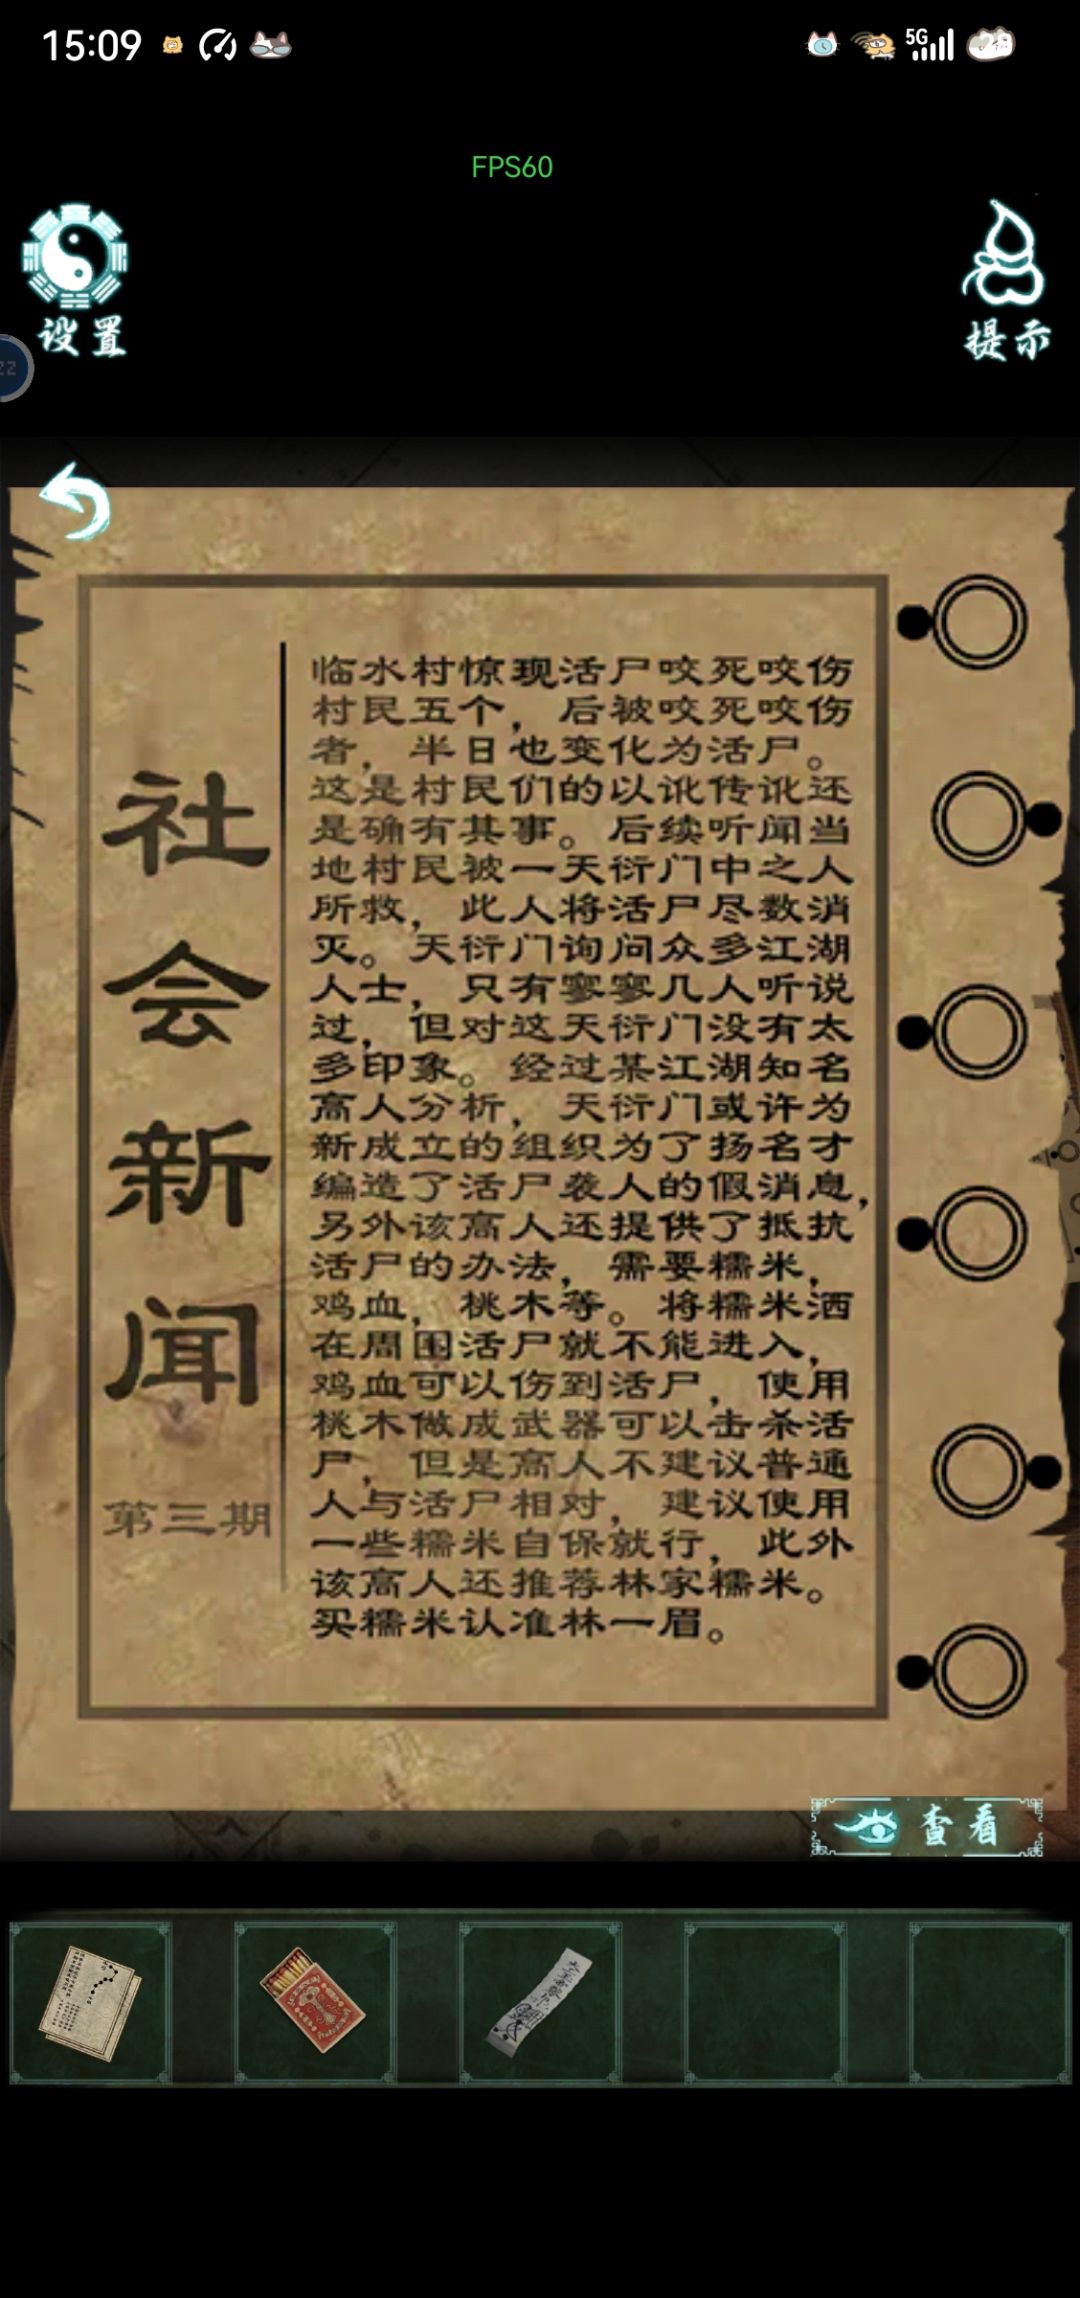 15:09
5G
FPS60
设置
提示
社会新闻
第三期
临水村惊现活尸咬死咬伤
村民五个，后被咬死咬伤
者，半日也变化为活尸。
这是村民们的以讹传讹还
是确有其事。后续听闻当
地村民被一天衍门中之人
所救，此人将活尸尽数消
灭。天衍门询问众多江湖
人士，只有寥寥几人听说
过，但对这天衍门没有太
多印象。经过某江湖知名
高人分析，天衍门或许为
新成立的组织为了扬名才
编造了活尸袭人的假消息，
另外该高人还提供了抵抗
活尸的办法，需要糯米，
鸡血，桃木等。将糯米洒
在周围活尸就不能进入，
鸡血可以伤到活尸，使用
桃木做成武器可以击杀活
尸，但是高人不建议普通
人与活尸相对，建议使用
一些糯米自保就行，此外
该高人还推荐林家糯米。
买糯米认准林一眉。
查看